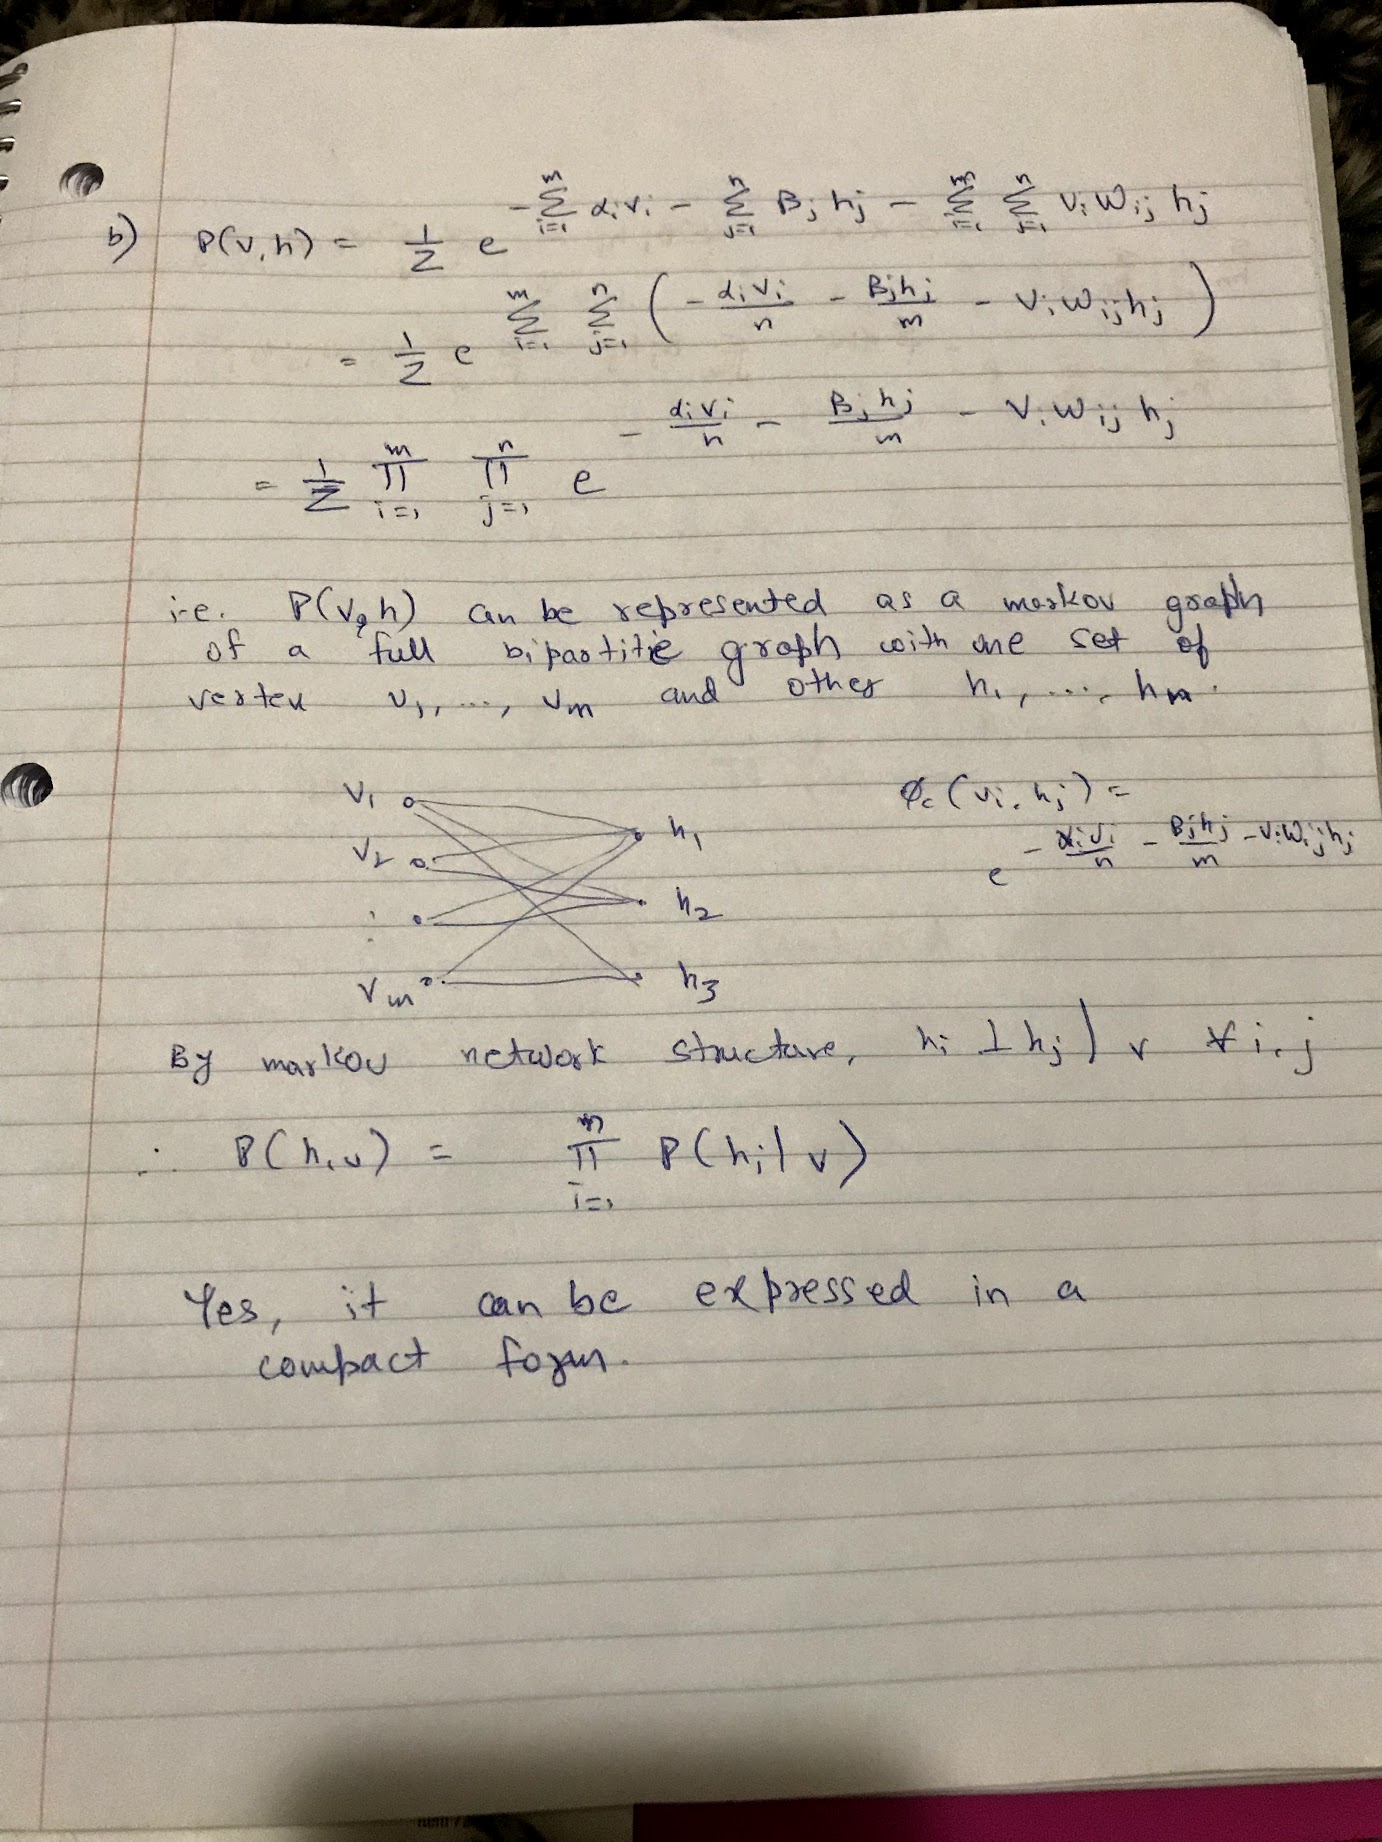 b) P(v,h) = 1/Z e^{-∑_{i=1}^{m} α_i v_i - ∑_{j=1}^{n} β_j h_j - ∑_{i=1}^{m} ∑_{j=1}^{n} v_i w_{ij} h_j}
= 1/Z e^{∑_{i=1}^{m} ∑_{j=1}^{n} ( - α_i v_i / n - β_j h_j / m - v_i w_{ij} h_j )}
= 1/Z ∏_{i=1}^{m} ∏_{j=1}^{n} e^{- α_i v_i / n - β_j h_j / m - v_i w_{ij} h_j}
i.e. P(v, h) can be represented as a markov graph
of a full bipartitie graph with one set of
vertex v_1, ..., v_m and other h_1, ..., h_n.
v_1
v_2
:
v_m
h_1
h_2
h_3
φ_c (v_i, h_j) =
e^{- α_i v_i / n - β_j h_j / m - v_i w_{ij} h_j}
By markov network structure, h_i ⊥ h_j | v ∀ i, j
∴ P(h,v) = ∏_{i=1}^{n} P(h_i | v)
Yes, it can be expressed in a
compact form.